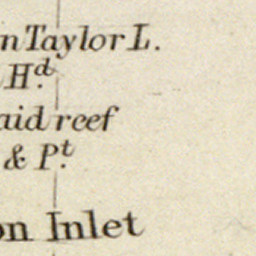 n Taylor I.
H.d
aid reef
& P.t
on Inlet